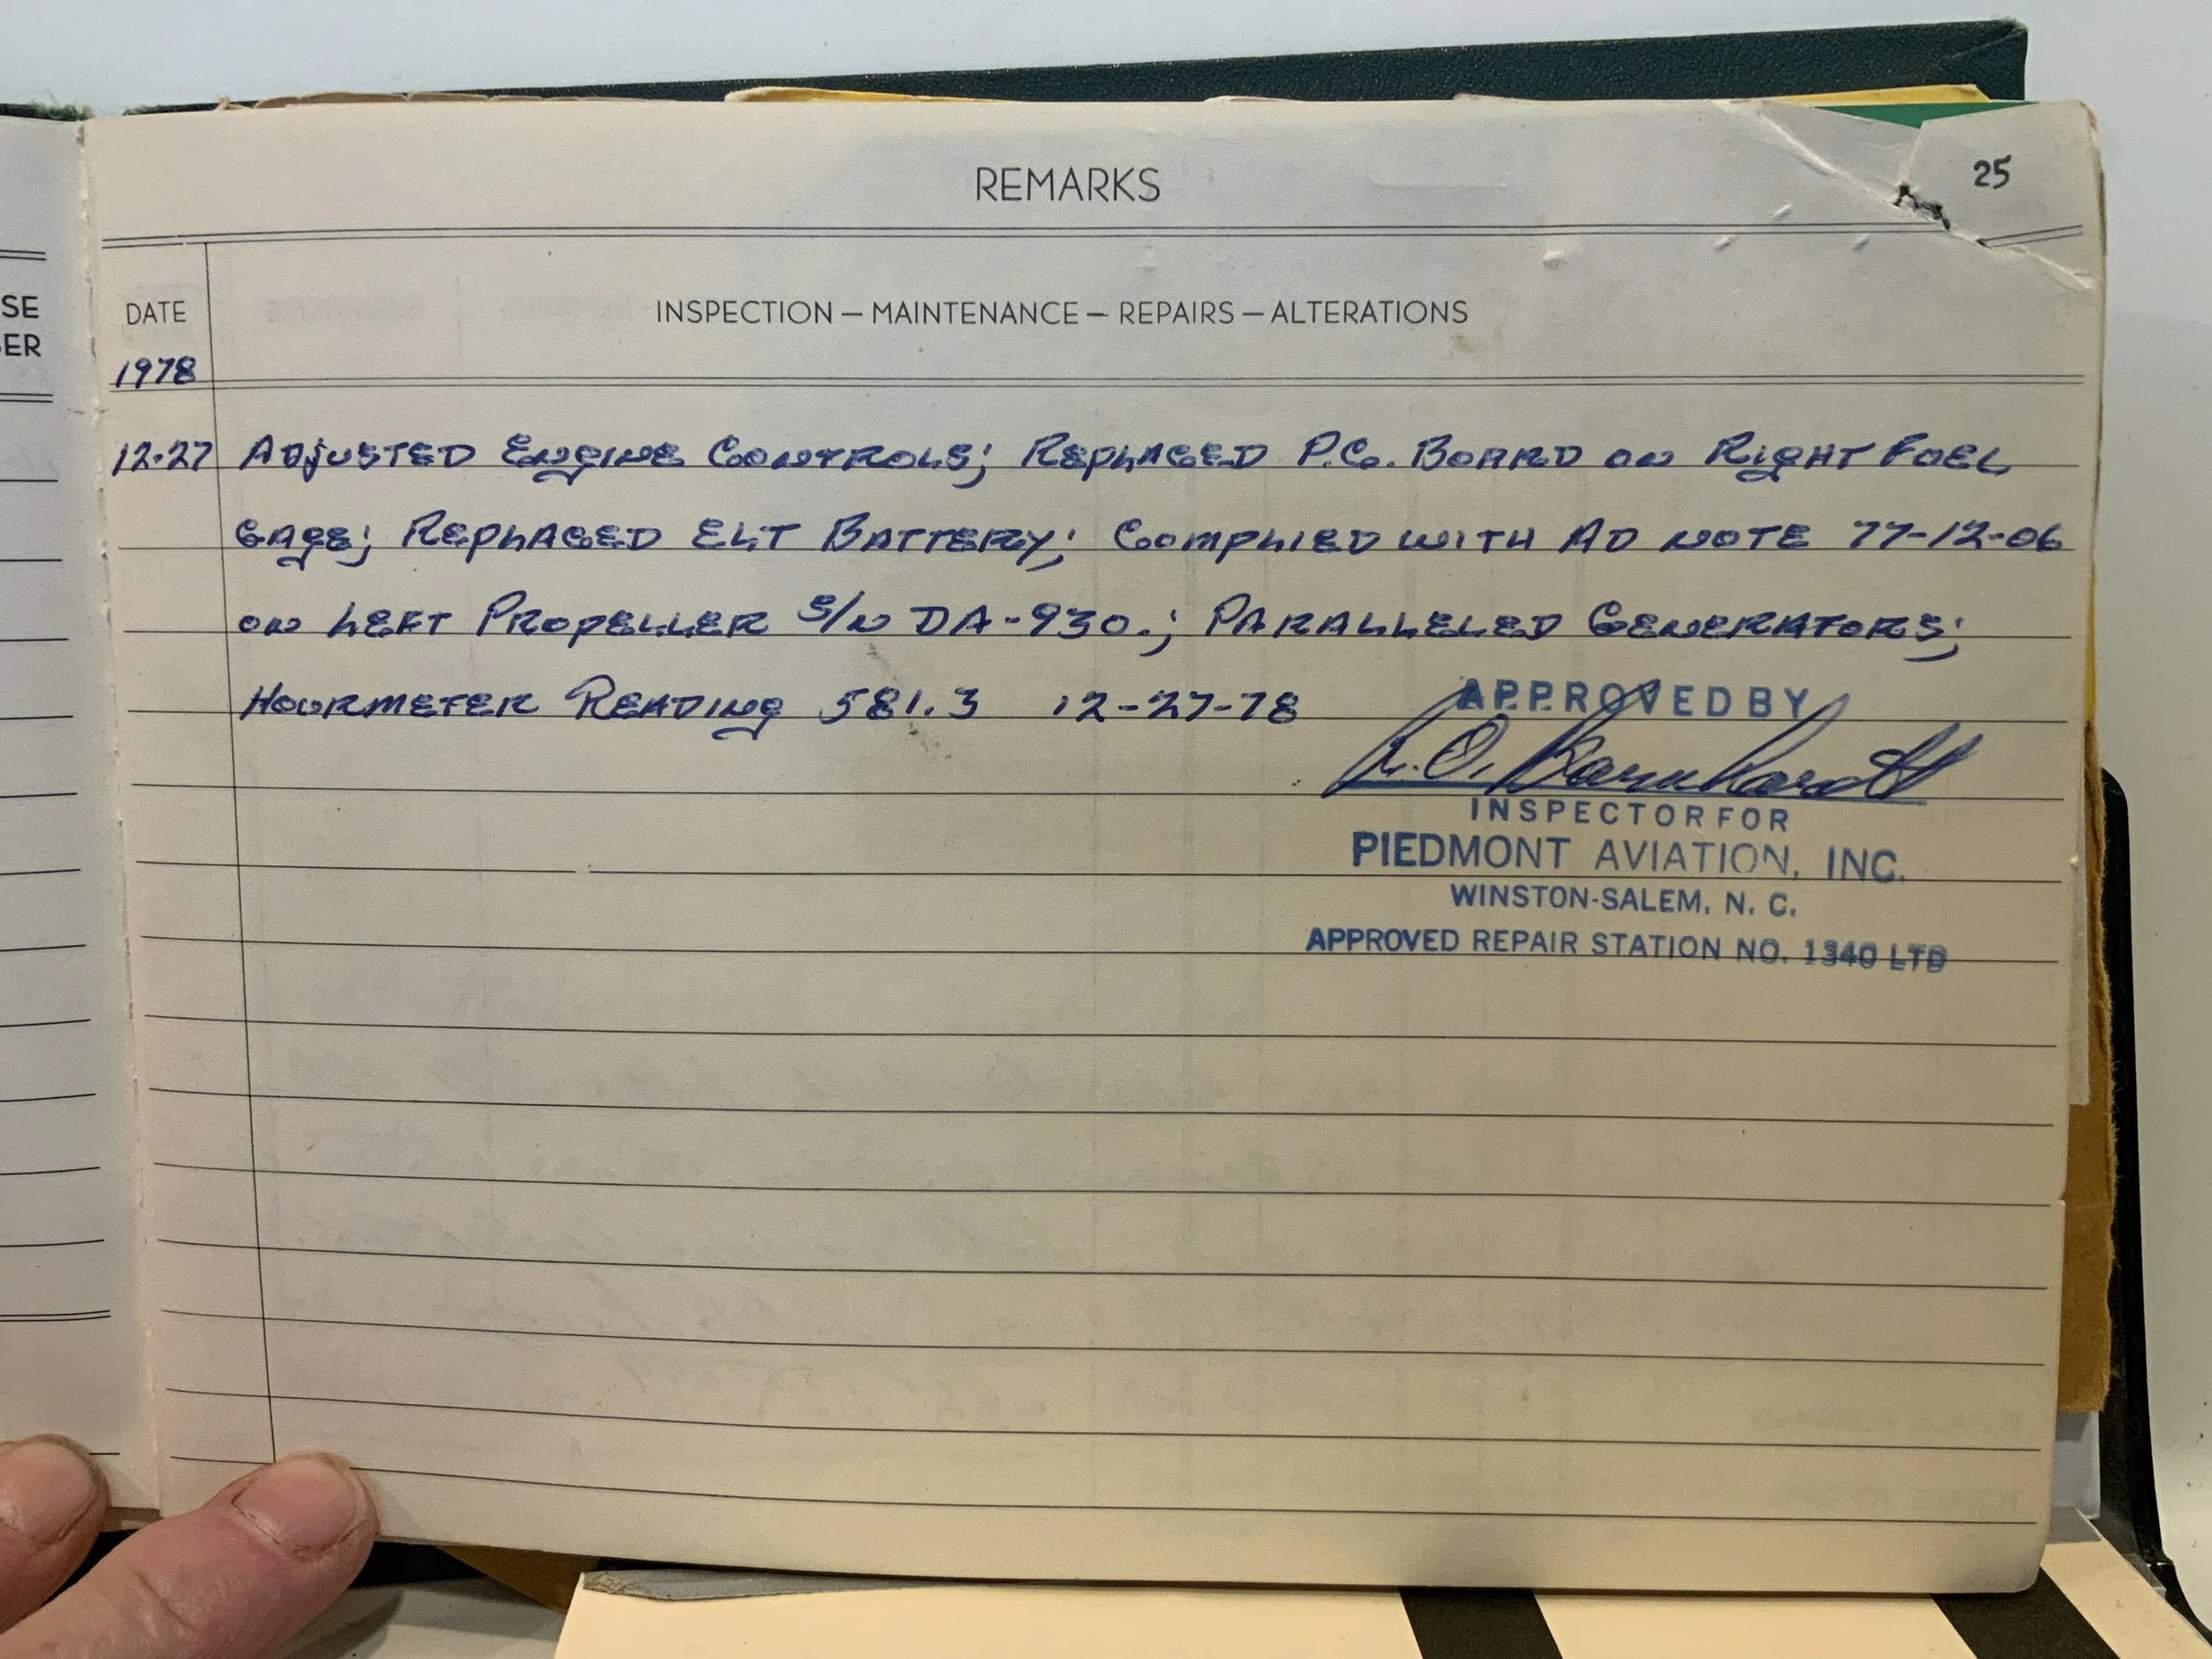 REMARKS
25
SE
ER
DATE
INSPECTION — MAINTENANCE — REPAIRS — ALTERATIONS
1978
12-27 ADJUSTED ENGINE CONTROLS; REPLACED P.C. BOARD ON RIGHT FUEL
GAGE; REPLACED ELT BATTERY; COMPLIED WITH AD NOTE 77-12-06
ON LEFT PROPELLER S/N DA-930.; PARALLELED GENERATORS;
HOURMETER READING 581.3 12-27-78
APPROVED BY
R.O. Barnhardt
INSPECTOR FOR
PIEDMONT AVIATION, INC.
WINSTON-SALEM, N. C.
APPROVED REPAIR STATION NO. 1340 LTD